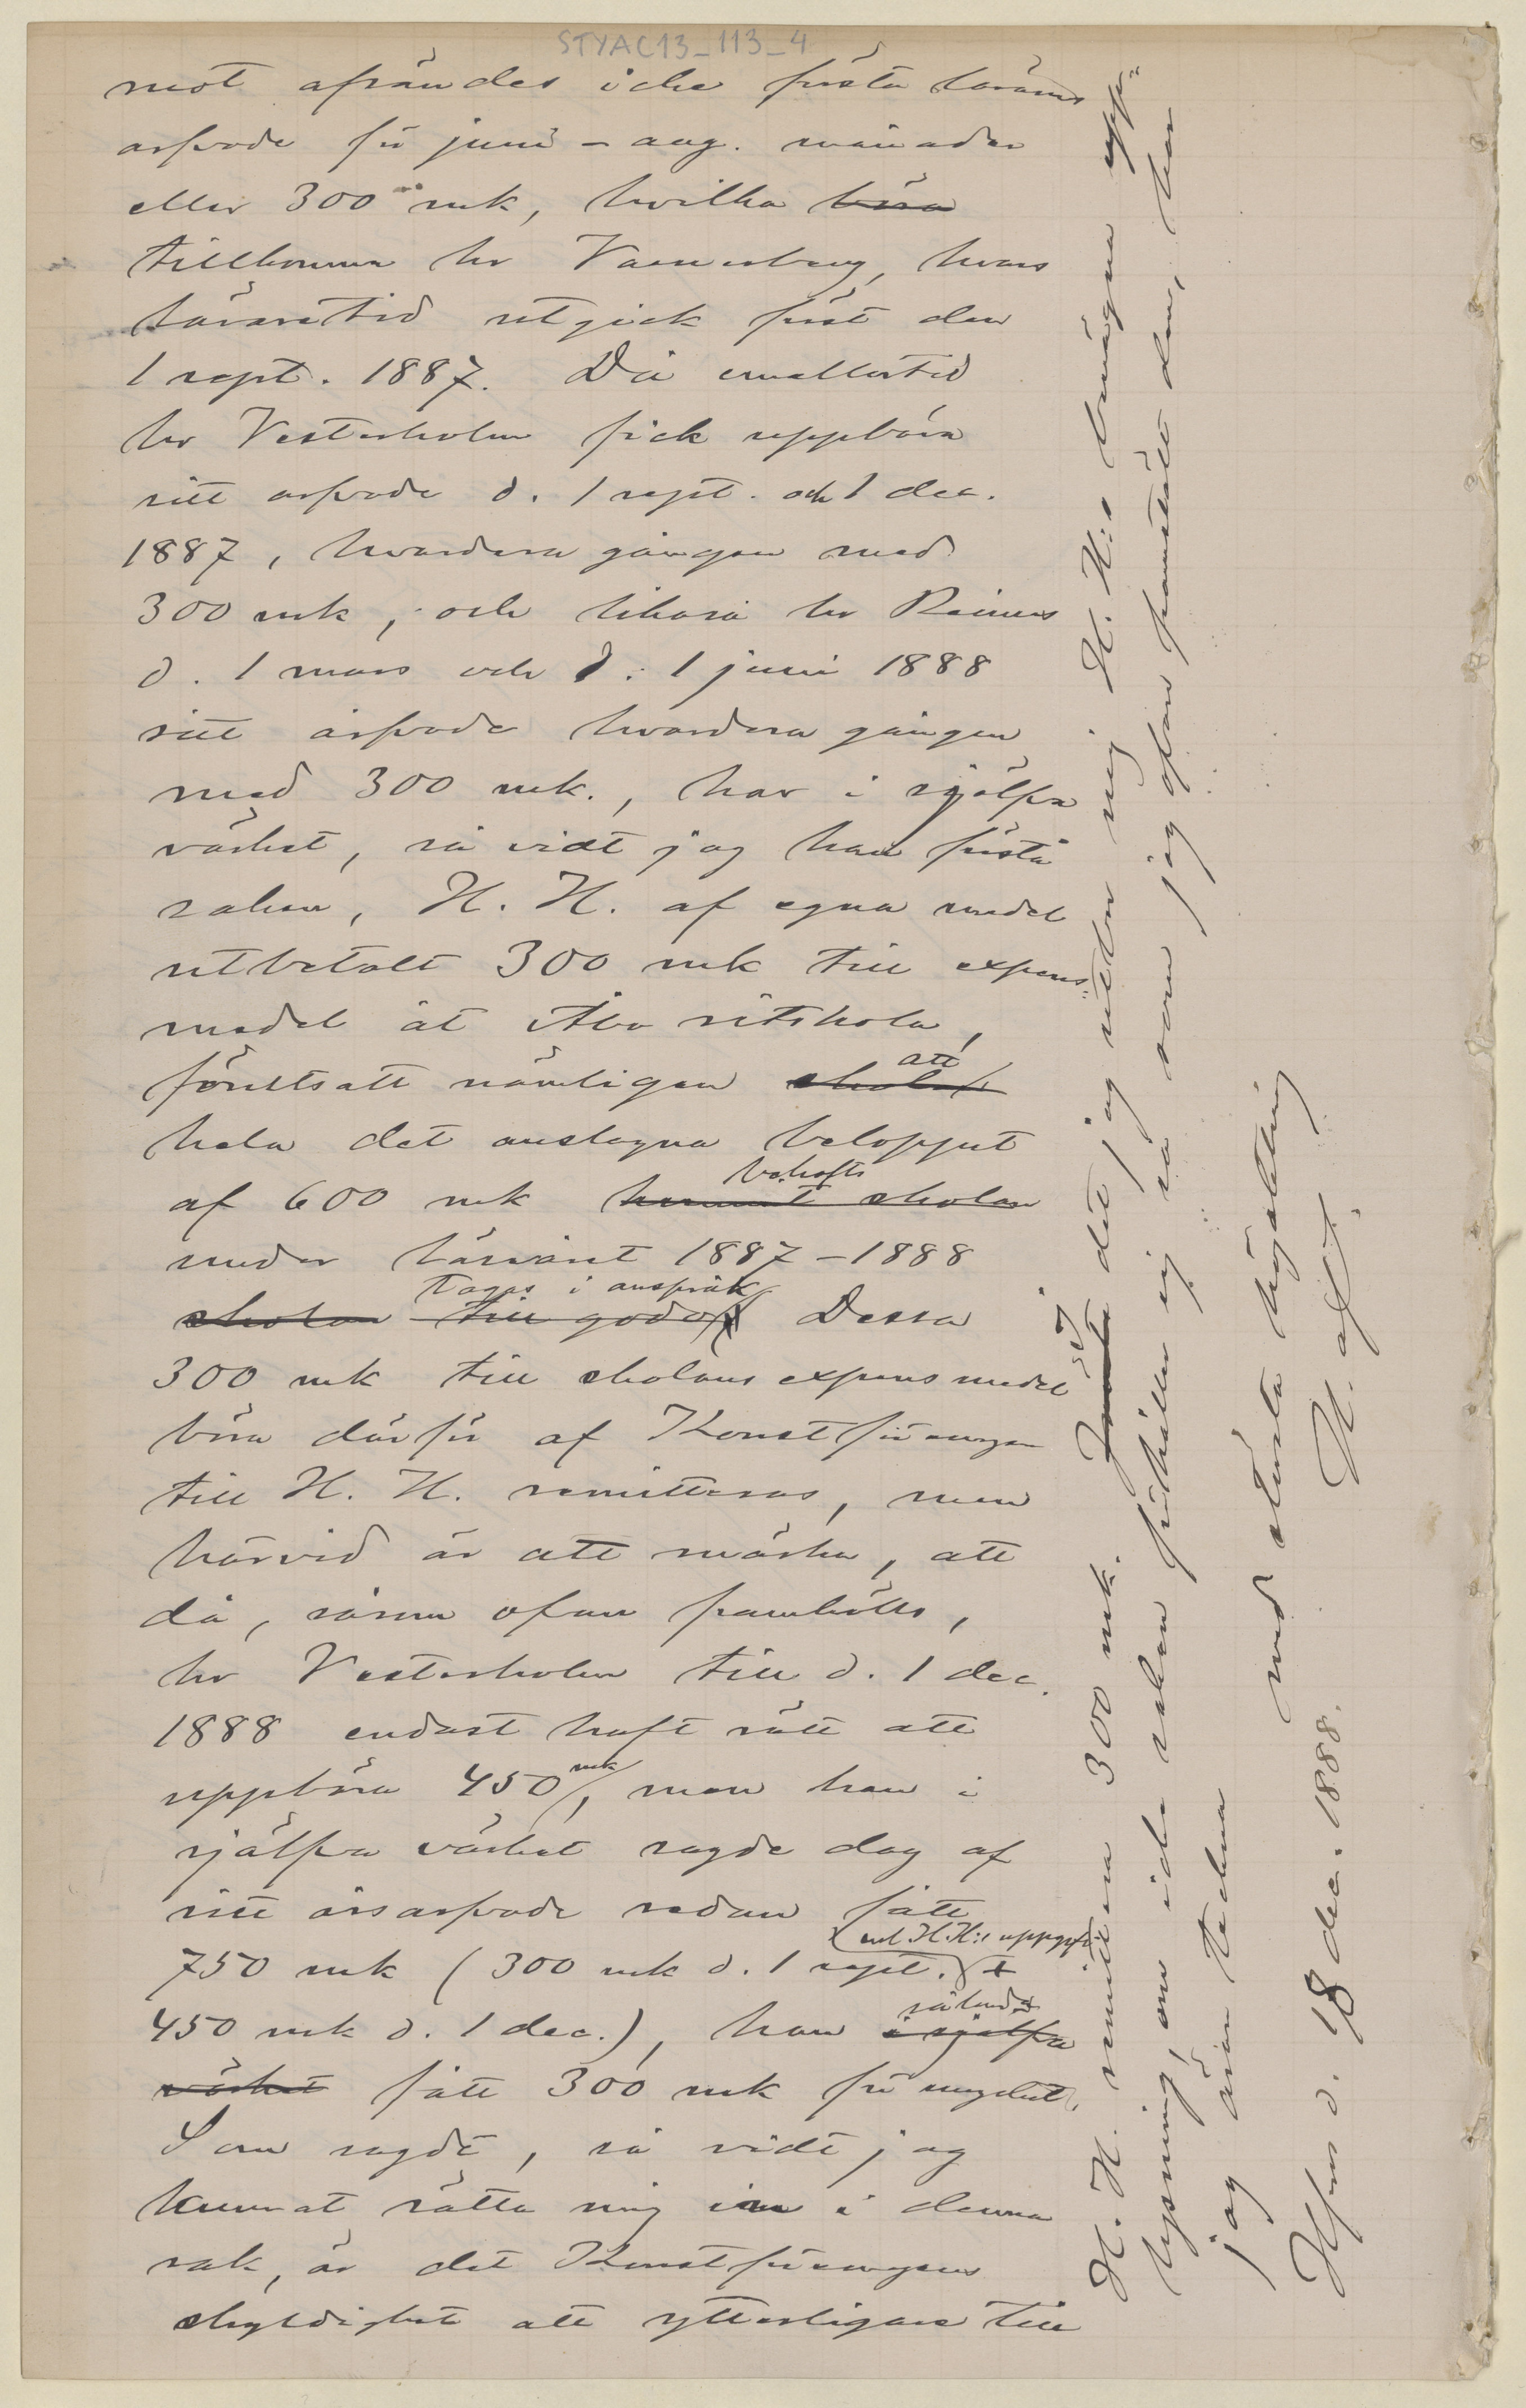 STYAC13_113_4
mot afsändes icke första lärarens
arfvode för juni – aug. månader
eller 300 mk, hvilka böra
tillkomma hr Vaenerberg, hvars
läraretid utgick först den
1 sept. 1887. Då emellertid
hr Vesterholm fick uppbära
sitt arfvode d. 1 sept. och 1 dec.
1887, hvardera gången med
300 mk, och likaså hr Reinius
d. 1 mars och d. 1 juni 1888
sitt arfvode hvardera gången
med 300 mk., har i själfva
värket, så vidt jag kan förstå
saken, H. H. af egna medel
utbetalt 300 mk till expens-
medel åt Åbo ritskola,
förutsatt nämligen att
hela det anslagna beloppet
af 600 mk behöfts
under läsåret 1887–1888
tagas i anspråk Dessa
300 mk till skolans expensmedel
böra därför af Konstföreningen
till H. H. remitteras, men
härvid är att märka, att
då, såsom ofvan framhölls,
hr Vesterholm till d. 1 dec.
1888 endast haft rätt att
uppbära 450 mk, men han i
själfva värket sagde dag af
sitt årsarfvode redan fått
enl H.H:s uppgift
750 mk (300 mk d. 1 sept. +
450 mk d. 1 dec.), han således
fått 300 mk för mycket.
Som sagdt, så vidt jag
kunnat sätta mig in i denna
sak, är det Konstföreningens
skyldighet att ytterligare till
H. H. remittera 300 mk. det jag utber mig H. H:s benägna upp-
lysning, om icke saken förhåller sig så som jag ofvan framstält den, har
jag äran teckna
med största högaktning
Hfors d. 18 dec. 1888.